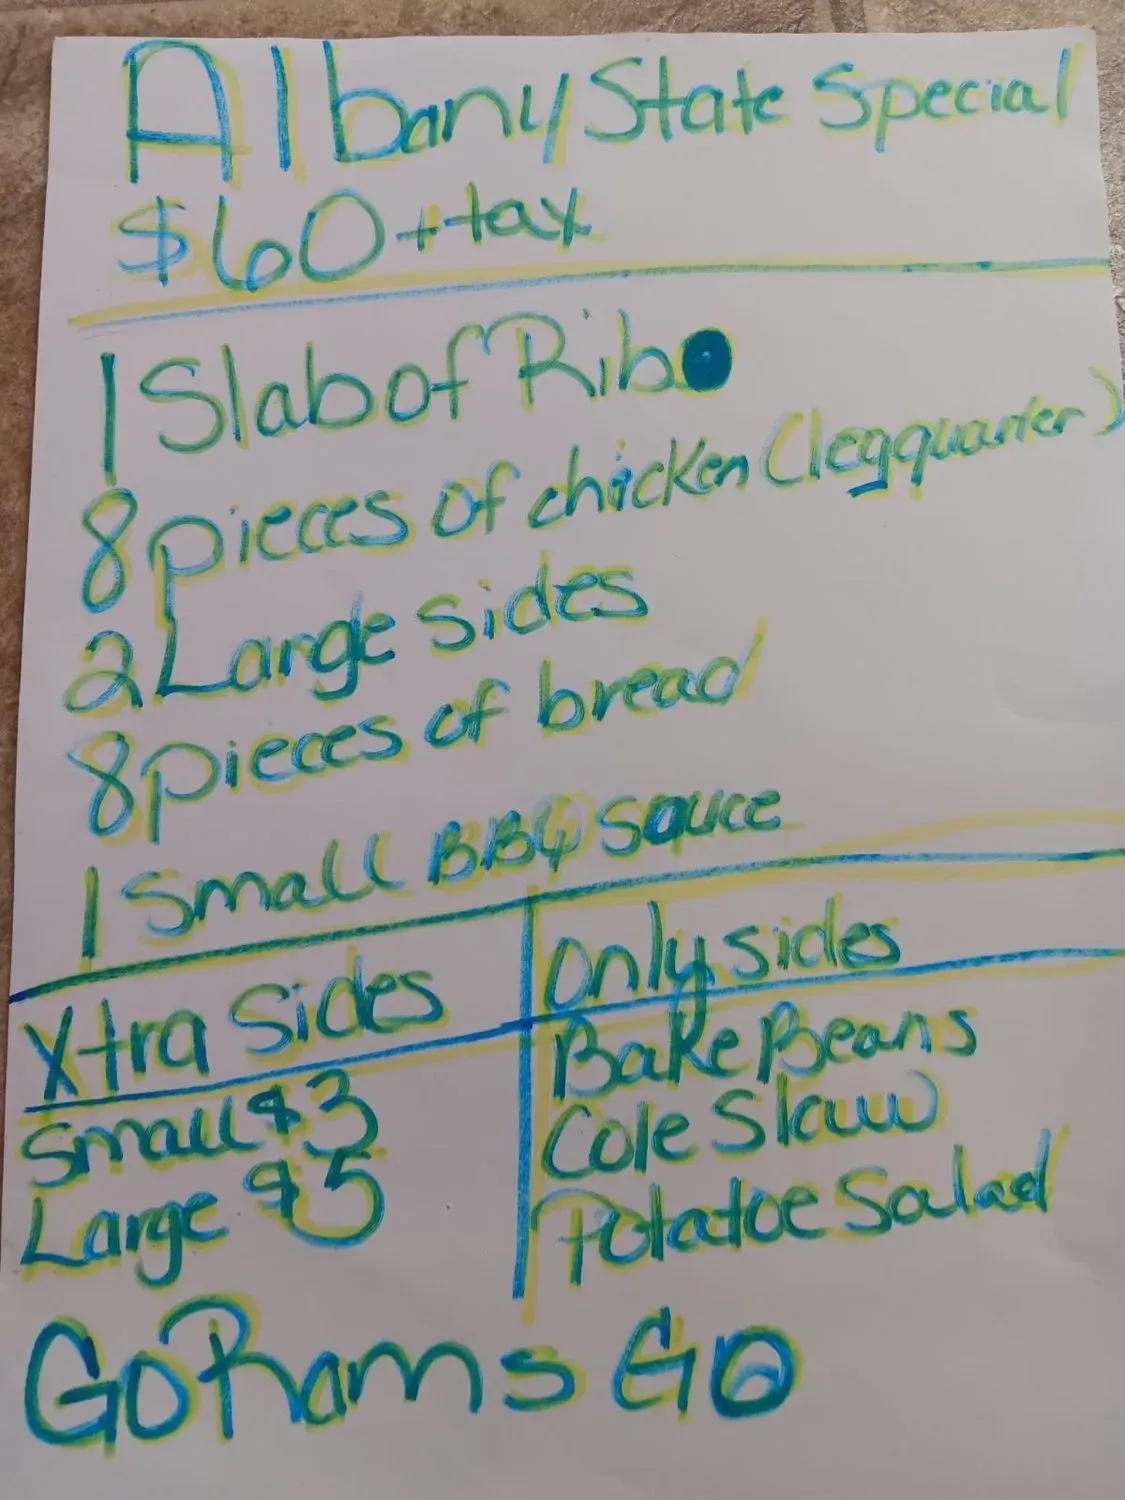 Albany State Special
$60 + tax
1 Slab of Rib
8 pieces of chicken (leg quarter)
2 Large sides
8 pieces of bread
1 Small BBQ sauce
Xtra Sides
Small $3
Large $5
Only sides
Bake Beans
Cole Slaw
Potatoe Salad
Go Rams Go